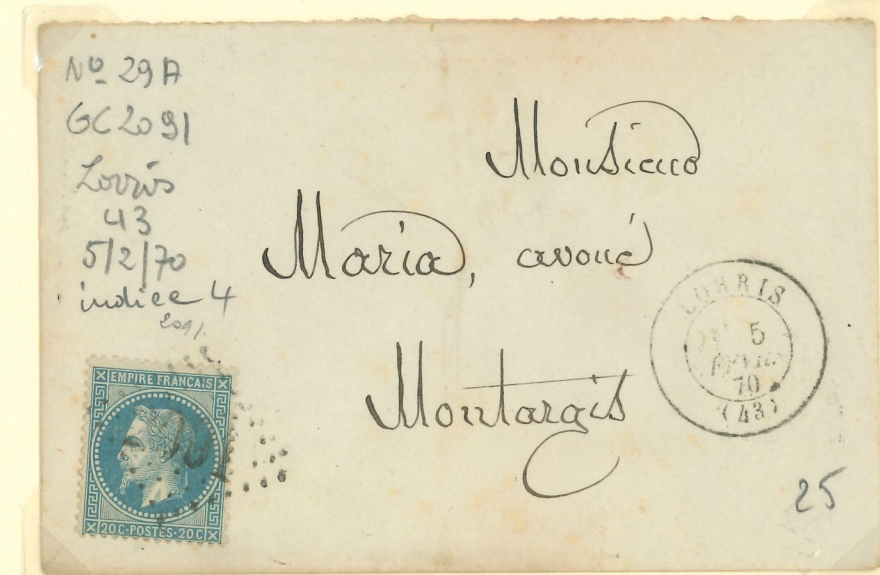 Nº 29A
GC 2091
Lorris
43
5/2/70
indice 4
2091
Monsieur
Maria, avoué
Montargis
LORRIS
5
FEVR.
70
(43)
EMPIRE FRANÇAIS
20C-POSTES-20C
25